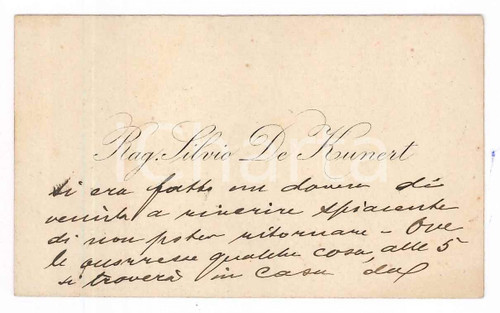 Rag. Silvio De Kunert
si era fatto un dovere di
venirla a riverire spiacente
di non poter ritornare - Ove
le occorresse qualche cosa, alle 5
si troverà in casa